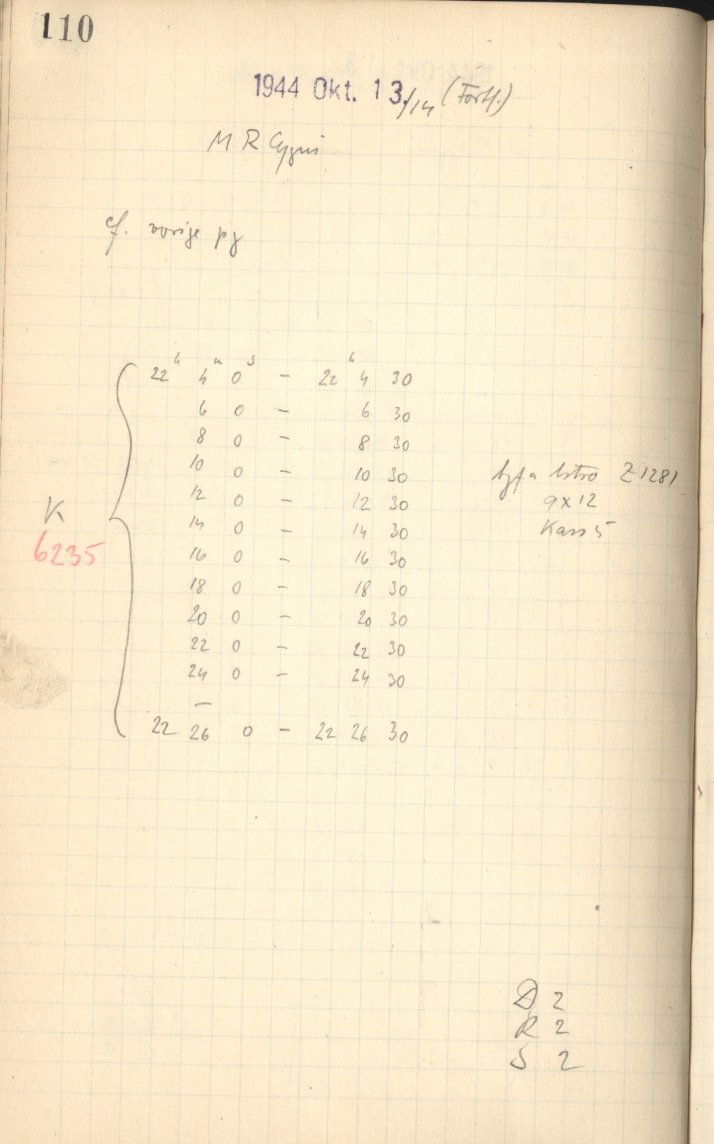 110
1944 Okt. 13./14 (Forts.)
M R Cygni
cf. vorige pg
22h 4m 0s - 22h 4 30
6 0 - 6 30
8 0 - 8 30
10 0 - 10 30
12 0 - 12 30
14 0 - 14 30
16 0 - 16 30
18 0 - 18 30
20 0 - 20 30
22 0 - 22 30
24 0 - 24 30
—
22 26 0 - 22 26 30
K
6235
Astro Z1281
9x12
Kass 5
D 2
R 2
S 2